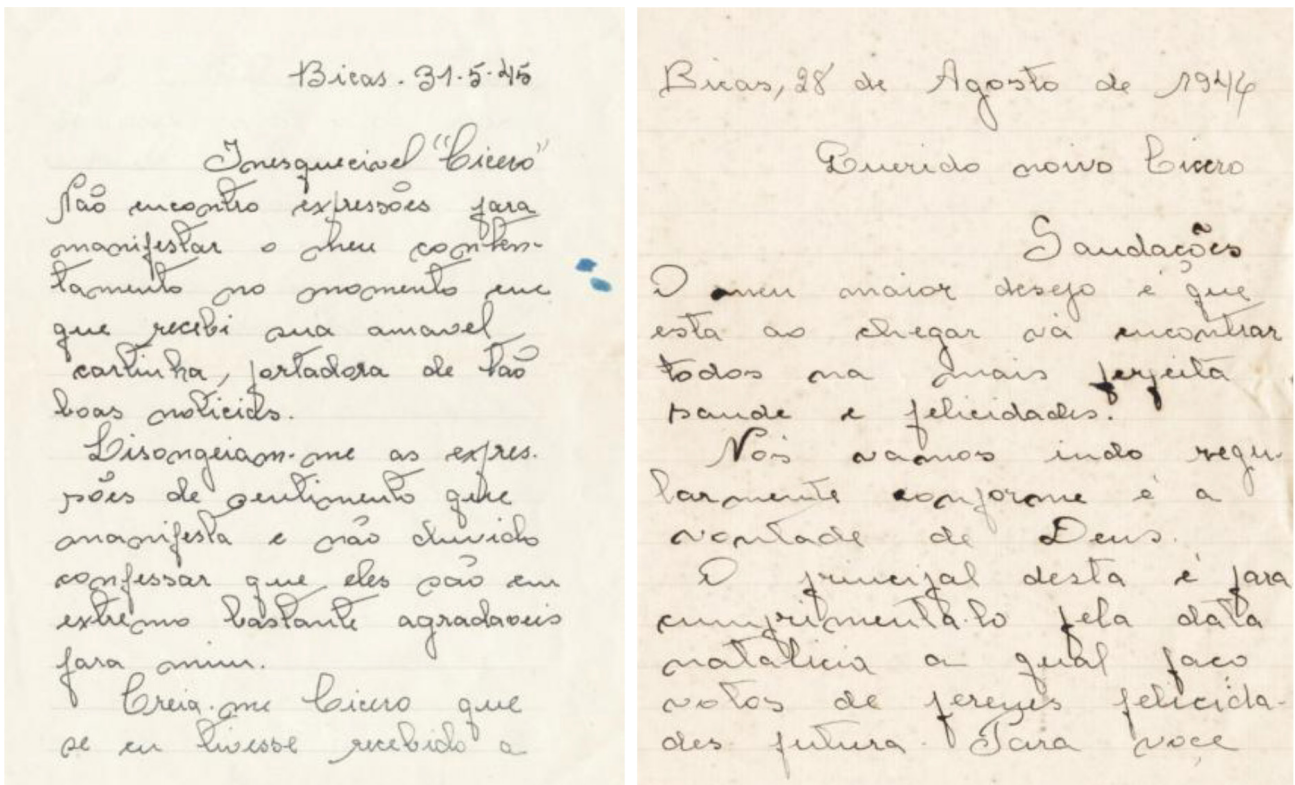 Bicas. 31-5-45
Inesquecivel "Cicero"
Não encontro expressões para
manifestar o meu conten-
tamento no momento em
que recebi sua amavel
cartinha, portadora de tão
boas noticias.
Lisongeiam-me as expres-
sões de sentimento que
manifesta e não duvido
confessar que eles são em
extremo bastante agradaveis
para mim.
Creia-me Cicero que
se eu tivesse recebido a
Bicas, 28 de Agosto de 1944
Querido noivo Cicero
Saudações
O meu maior desejo é que
esta ao chegar vá encontrar
todos na mais perfeita
saude e felicidades.
Nós vamos indo regu-
larmente conforme é a
vontade de Deus.
O principal desta é para
cumprimenta-lo pela data
natalicia a qual faço
votos de perenes felicida-
des futura. Para você